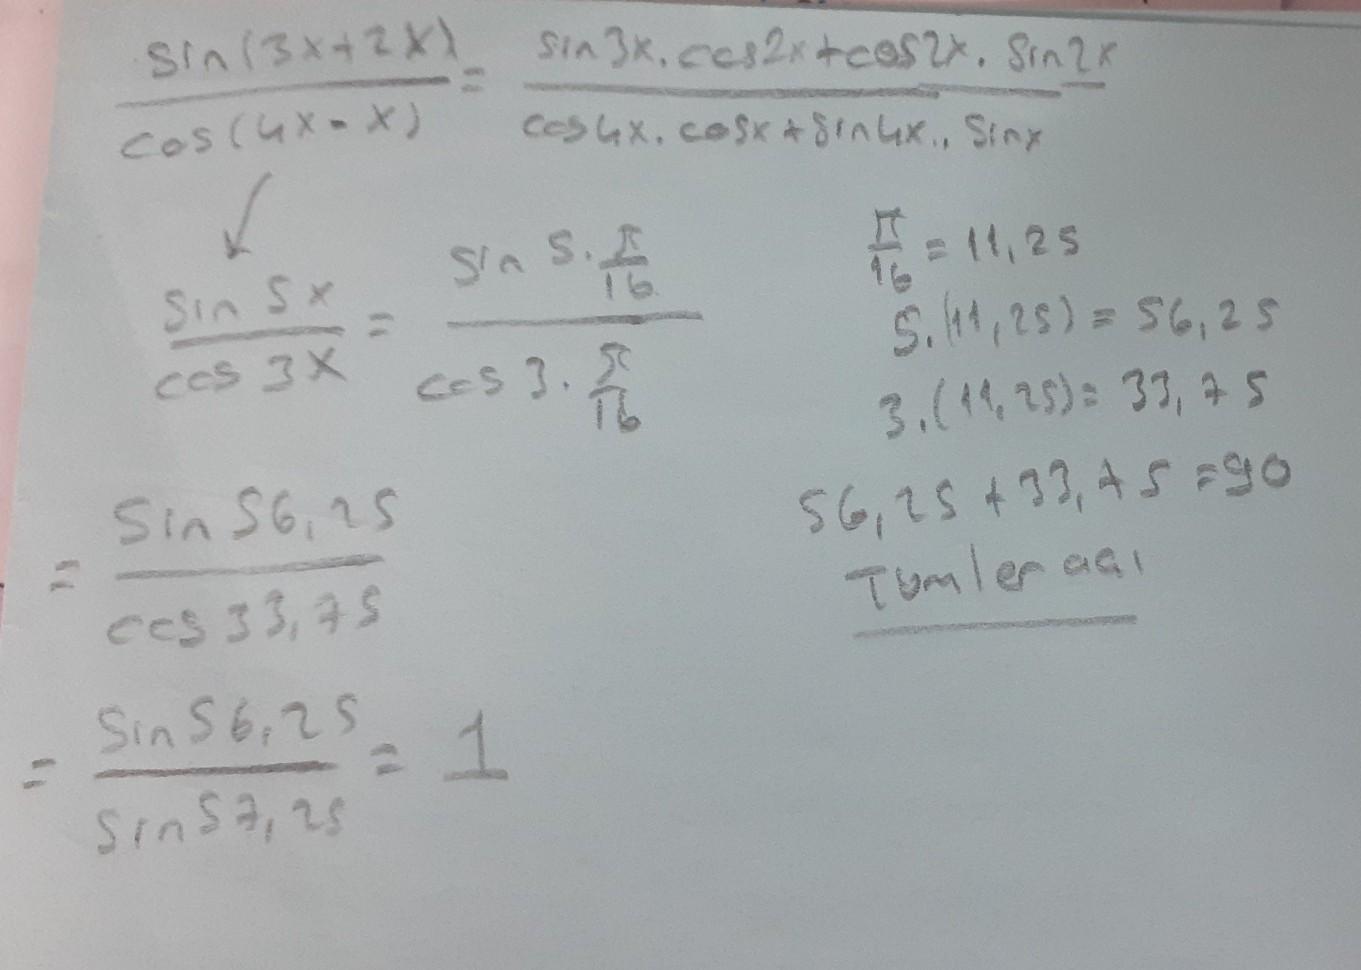 sin(3x+2x) / cos(4x-x) = sin3x.cos2x+cos2x.sin2x / cos4x.cosx+sin4x..sinx
sin5x / cos3x = sin 5.π/16 / cos 3.π/16
π/16 = 11,25
5.(11,25) = 56,25
3.(11,25) = 33,75
56,25+33,75=90
Tümler açı
= sin56,25 / cos33,75
= sin56,25 / sin57,25 = 1